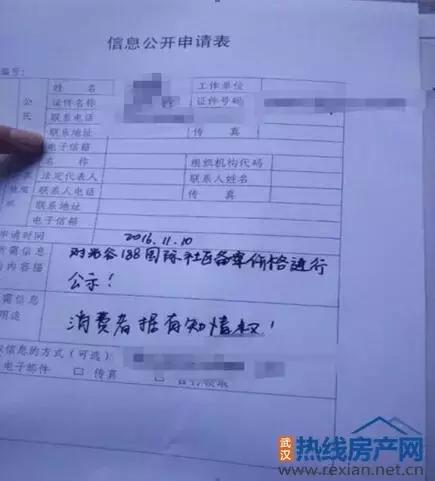 信息公开申请表
编号:
姓 名 工作单位
公 证件名称 证件号码
民 联系电话
联系地址 传 真
电子信箱
名 称 组织机构代码
法定代表人 联系人姓名
联系人电话 传 真
联系地址
电子信箱
申请时间 2016.11.10
所需信息 对光谷188国际社区备案价格进行
内容描 公示!
需信息
用途 消费者据有知情权!
信息的方式(可选)
电子邮件 □ 传真 □
武汉 热线房产网
www.rexian.net.cn